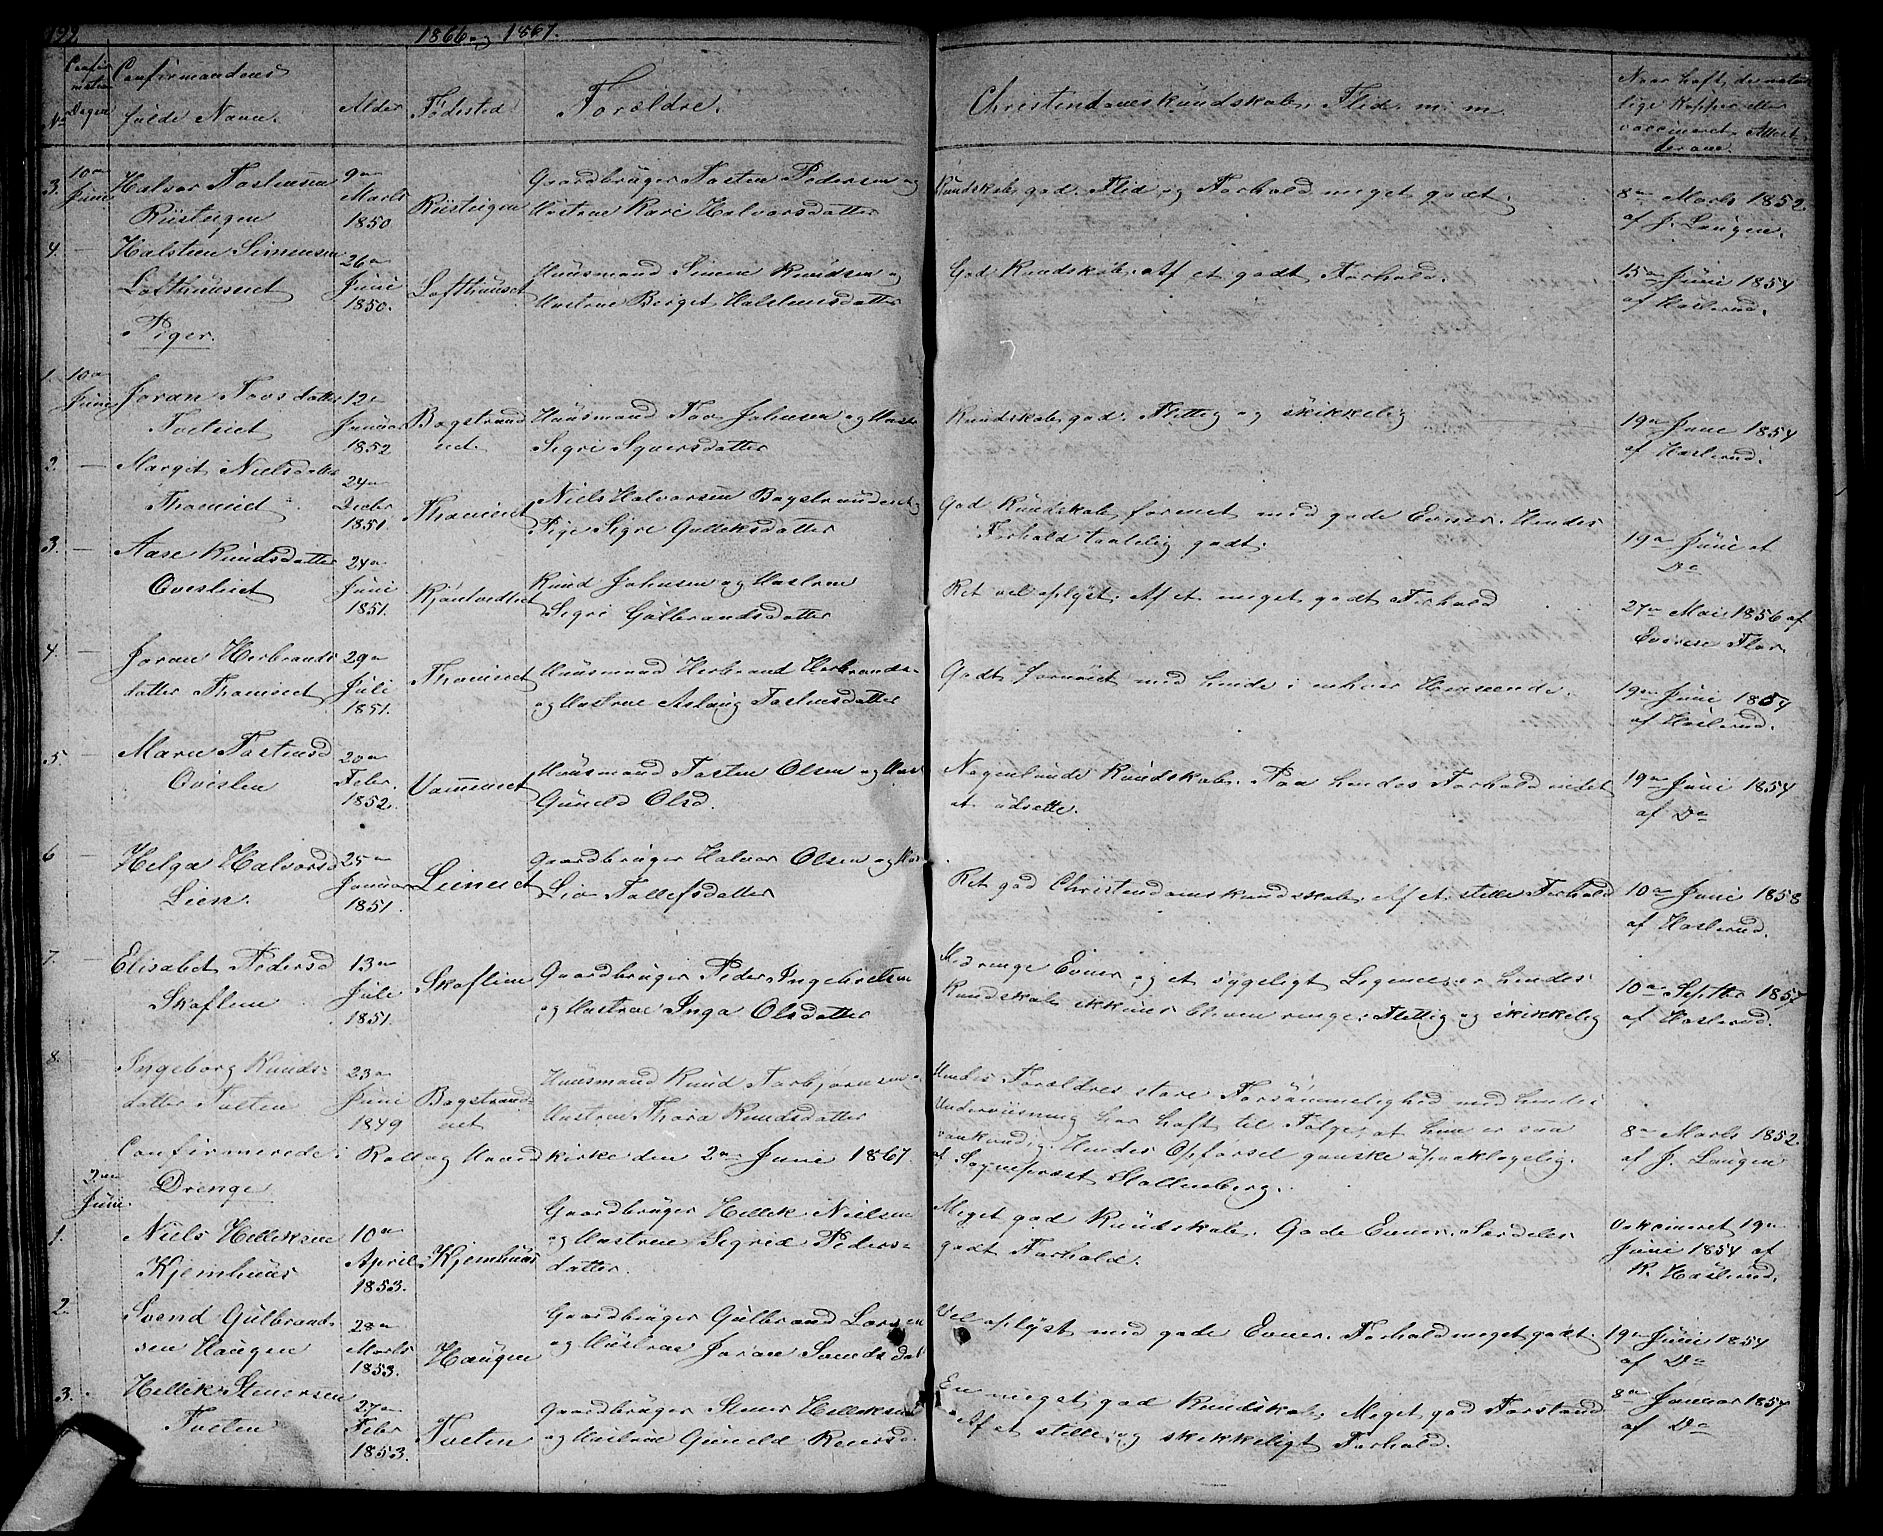 122
1866 og 1867.
Confirmandens
fulde Navn.
Alder
Fødested
Forældre.
Christendomskundskab, Flid m. m.
Naar haft de natur-
lige Kopper eller
vaccineret. Attest
derom.
No
Dagen
3. 10de Juni
Halvor Tostensen
Riisteigen
9de
Marts
1850
Riisteigen
Gaardbruger Tosten Pedersen og
Hustrue Kari Halvorsdatter
Kundskab god. Flid og Forhold meget godt.
8de Marts 1852
af J. Laugen.
4. —
Halsten Simensen
Lofthuuset
26de
Juni
1850.
Lofthuuset
Huusmand Simen Knudsen og
Hustrue Berget Halstensdatter
God Kundskab. Af et godt Forhold.
15de Juni 1854
af Haslerud.
Piger.
1. 10de Juni
Joran Tovsdatter
Tveteiet
12te
Januar
1852
Bagstrand
eiet.
Huusmand Tov Johnsen og Hustr
Sigri Sjversdatter
Kundskab god. Flittig og skikkelig
19de Juni 1854
af Haslerud.
2. —
Margit Nielsdatter
Thomeiet
24de
Decbr
1851.
Thomeiet
Niels Halvorsen Bagstrandeiet og
Pige Sigri Gulleksdatter
God Kundskab, forenet med gode Evner. Hendes
Forhold taalelig godt.
19de Juni af
Do
3. —
Aase Knudsdatter
Ovesleiet
24de
Juni
1851.
Knud Johnsen og Hustrue
Sigri Gulbrandsdatter
Ret vel oplyst. Af et meget godt Forhold
27de Mai 1856 af
Even Flor
4. —
Joran Herbrands
datter Thomeiet
29de
Juli
1851.
Thomeiet
Huusmand Herbrand Herbrands-
og Hustrue Aslaug Tostensdatter
Godt fornøiet med hende i enhver Henseende.
19de Juni 1854
af Haslerud.
5. —
Maren Tostensd
Oveslen
20de
Febr.
1852.
Huusmand Tosten Olsen og Hus
Gunild Olsd.
Nogenlunde Kundskab. Paa hendes Forhold intet
at udsette.
19de Juni 1854
af Do
6 —
Helga Halvorsd
Lien.
25de
Januar
1851.
Lieneiet
Gaardbruger Halvor Olsen og Hus
Liv Tollefsdatter
Ret god Christendomskundskab. Af et stille Forhold
10de Juni 1858
af Haslerud.
7. —
Elisabet Pedersd
Skoflien
13de
Juli
1851.
Skoflien
Gaardbruger Peder Ingebretsen
og Hustrue Inga Olsdatter
Med ringe Evner og et sygeligt Legeme er hendes
Kundskab ikkuns bleven ringe. Flittig og skikkelig
10de Septbr 1857
af Haslerud.
8. —
Ingeborg Knuds-
datter Tveten
23de
Juni
1849
Bagstrand-
eiet
Huusmand Knud Torbjørnsen o
Hustrue Thora Knudsdatter
Hendes Forældres store Forsømmelighed med hendes
Underviisning har haft til Følge, at hun er saa
vankundig. Hendes Opførsel ganske upaaklagelig.
af Sognepræst Stoltenberg.
8de Marts 1852
af J. Laugen
Confirmerede i Rollag Hovedkirke den 2den Juni 1867.
2den
Juni.
Drenge
1.
Niels Helleksen
Kjemhuus
10de
April
1853.
Kjemhuus
Gaardbruger Hellik Nielsen
og Hustrue Sigrid Peders-
datter.
Meget god Kundskab. Gode Evner. Særdeles
godt Forhold.
Vakcineret 19de
Juni 1854 af
K. Haslerud.
2.
Svend Gulbrand-
sen Haugen
28de
Marts
1853.
Haugen
Gaardbruger Gulbrand Larsen
og Hustrue Joran Svendsdat
Vel oplyst med gode Evner. Forhold meget godt.
19de Juni 1854
af Do
3.
Hellik Stenersen
Tveten
27de
Febr
1853.
Tveten
Gaardbruger Stener Helliksen
og Hustrue Gunild Reiersd.
En meget god Kundskab. Meget god Forstand
Af et stille og skikkeligt Forhold.
8de Januar 1857
af Do